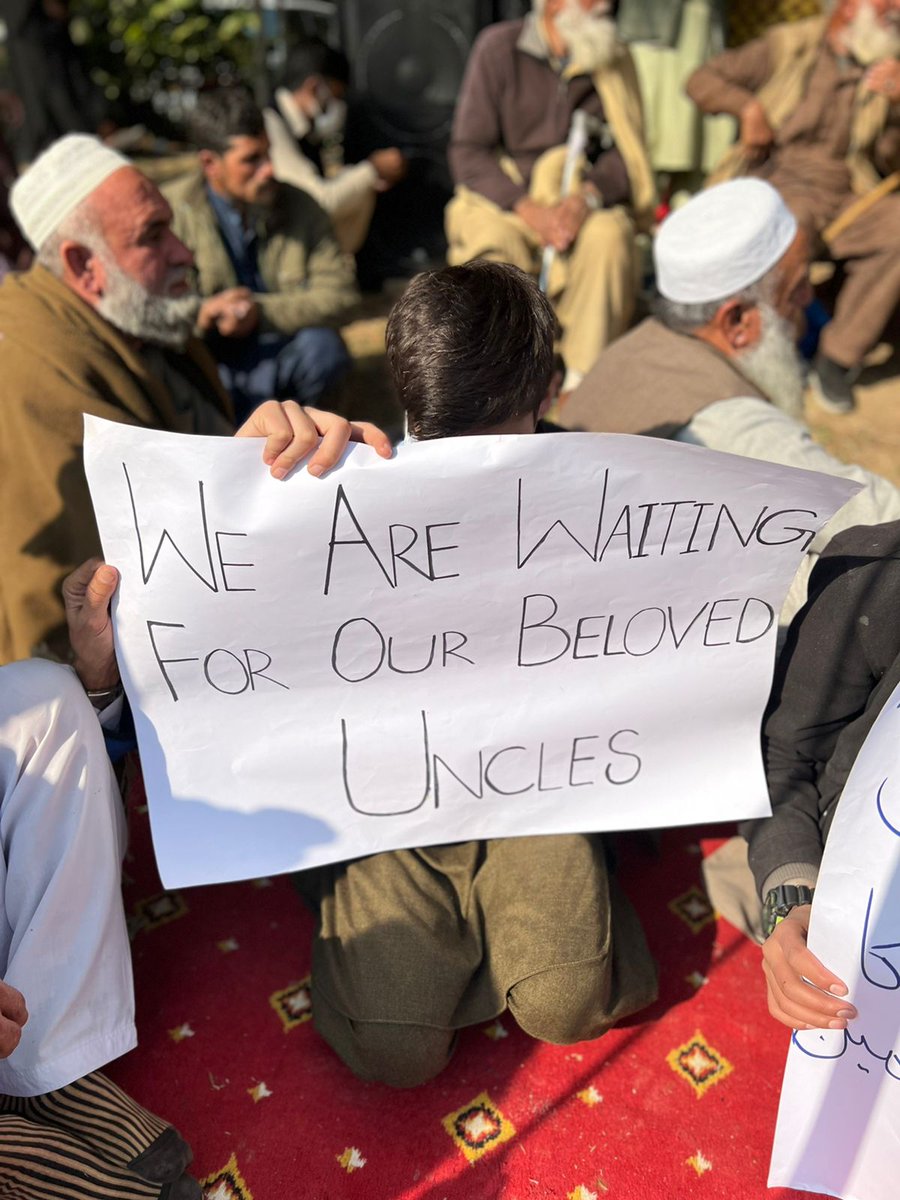 We Are Waiting
For Our Beloved
Uncles